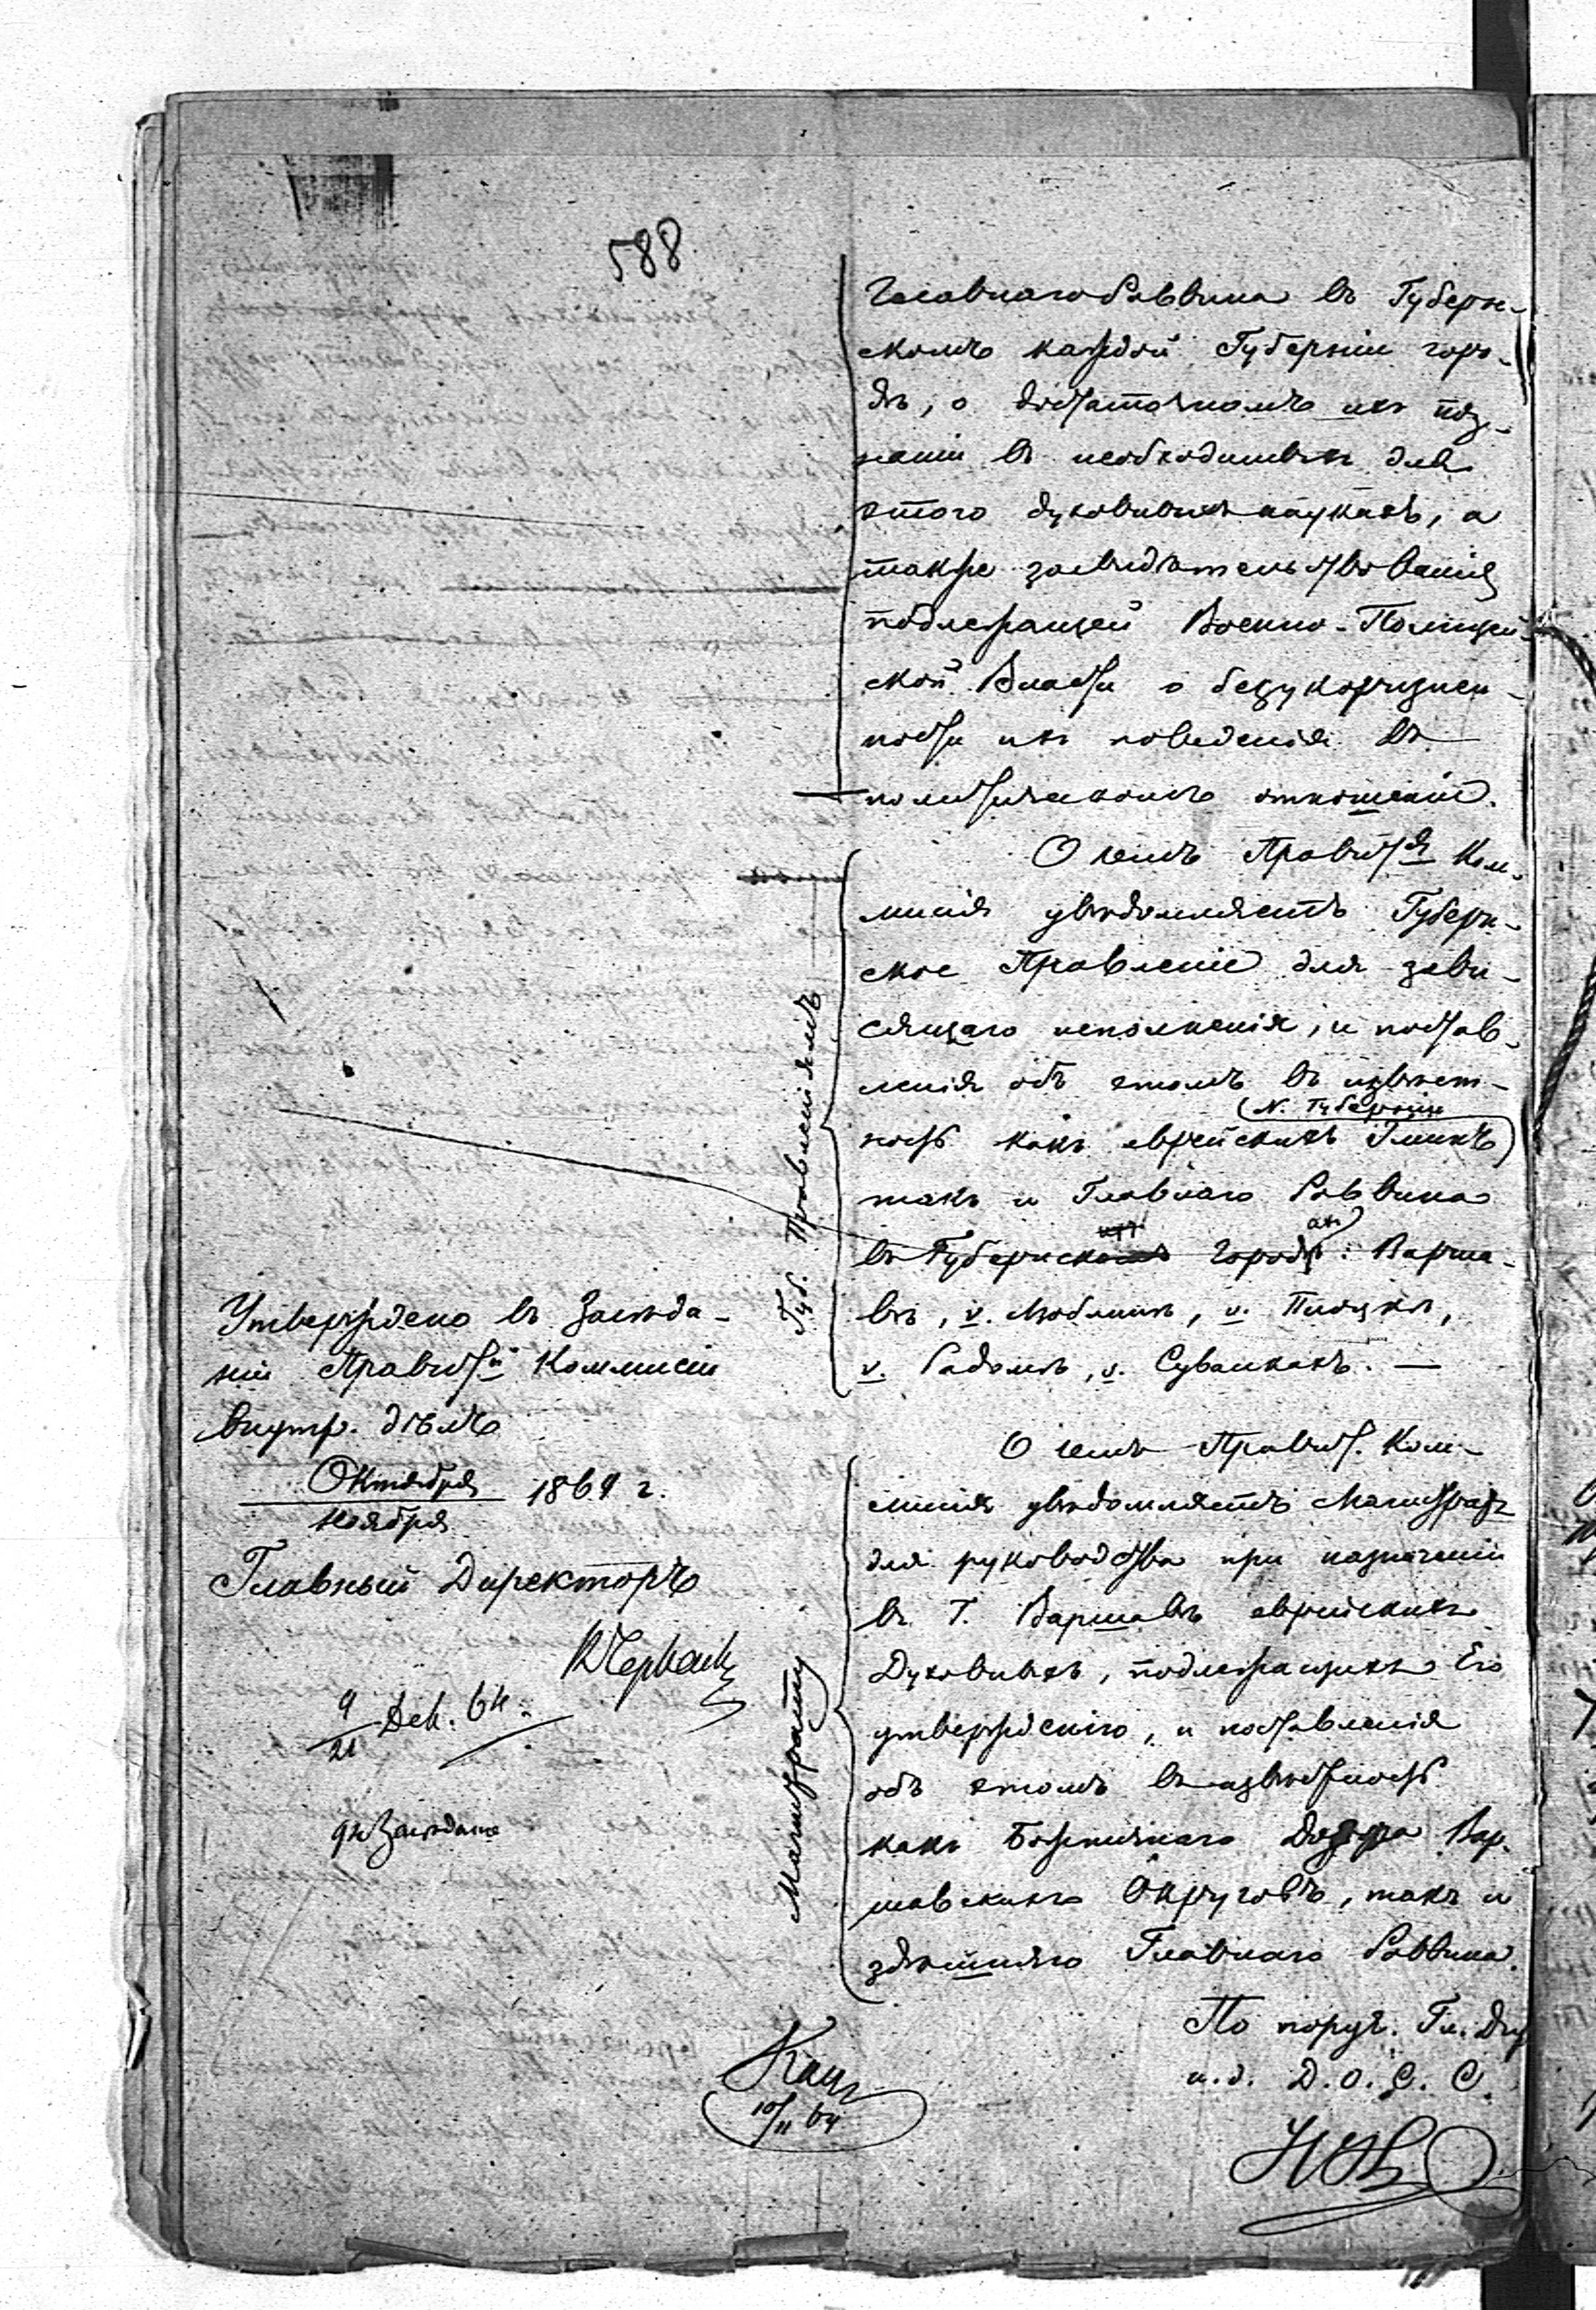 588
Главнаго Раввина въ Губерн-
скомъ каждой Губерніи горо-
дѣ, о достаточномъ ихъ поз-
наніи въ необходимыхъ для
этого духовныхъ наукахъ, а
также засвидѣтельствованія
подлежащей Военно-Полицей-
ской Власти о безукоризнен-
ности ихъ поведенія въ
политическомъ отношеніи.
О чемъ Правитя Ком-
мисія увѣдомляетъ Губерн-
ское Правленіе для зави-
сящаго исполненія, и постав-
ленія объ этомъ въ извѣст-
(N. Губерніи
ность какъ еврейскихъ Гминъ)
такъ и Главнаго Раввина
въ Губернскомъ Городѣ: Варша-
вѣ, v. Люблинѣ, v. Плоцкѣ,
v. Радомѣ, v. Сувалкахъ. —
Губ. Правленіямъ
О чемъ Правит. Ком-
мисія увѣдомляетъ Магистратъ
для руководства при назначеніи
въ Г. Варшавѣ еврейскихъ
Духовныхъ, подлежащихъ Его
утвержденію, и поставленія
объ этомъ въ извѣстность
какъ Божничнаго Дозора Вар-
шавскихъ Округовъ, такъ и
здѣшняго Главнаго Раввина.
Магистрату
По поруч. Гл. Дир
и. д. Д. О. С. С.
Утверждено въ Засѣда-
ніи Правитй Коммисіи
Внутр. дѣлъ
Октября
Ноября 1864 г.
Главный Директоръ
9/21 Дек. 64.
Засѣданіе
10/11 64